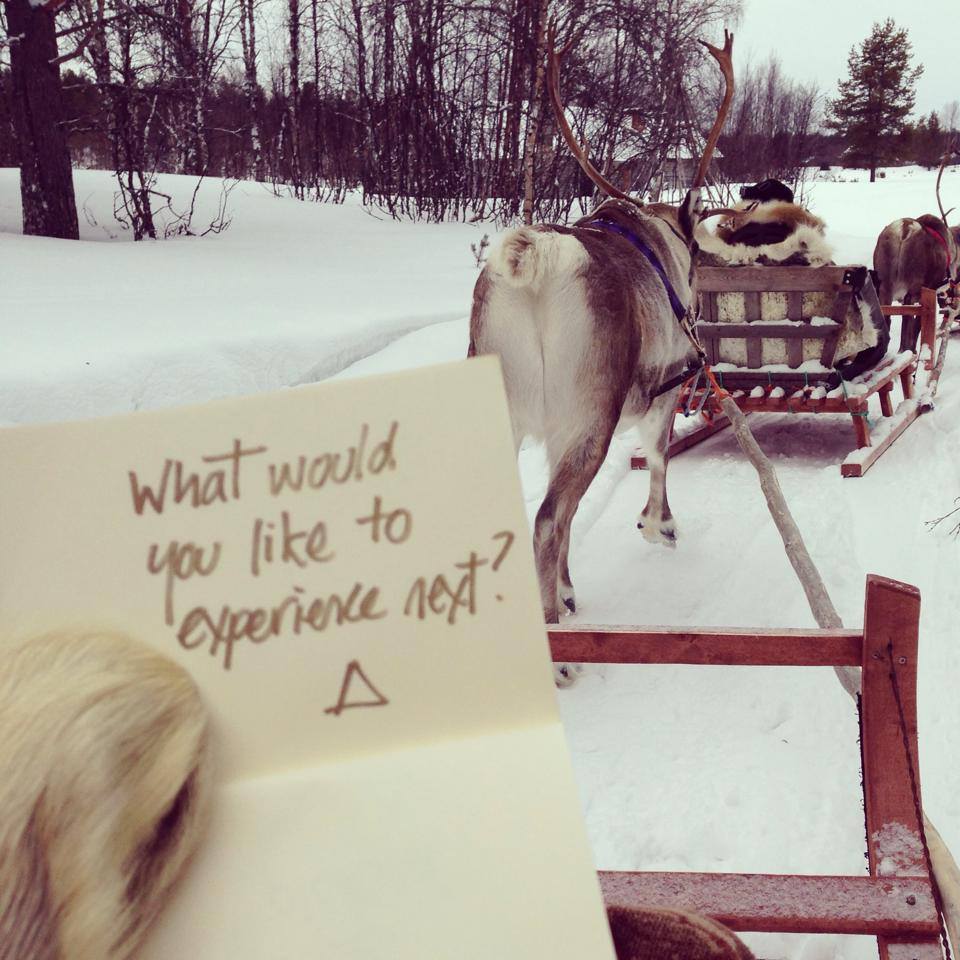 What would
you like to
experience next?